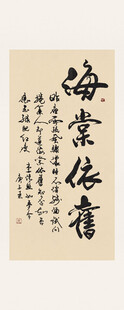 海棠依舊
昨夜雨疏風驟濃睡不消殘酒試問
捲簾人卻道海棠依舊知否知否
應是綠肥紅瘦
李清照如夢令